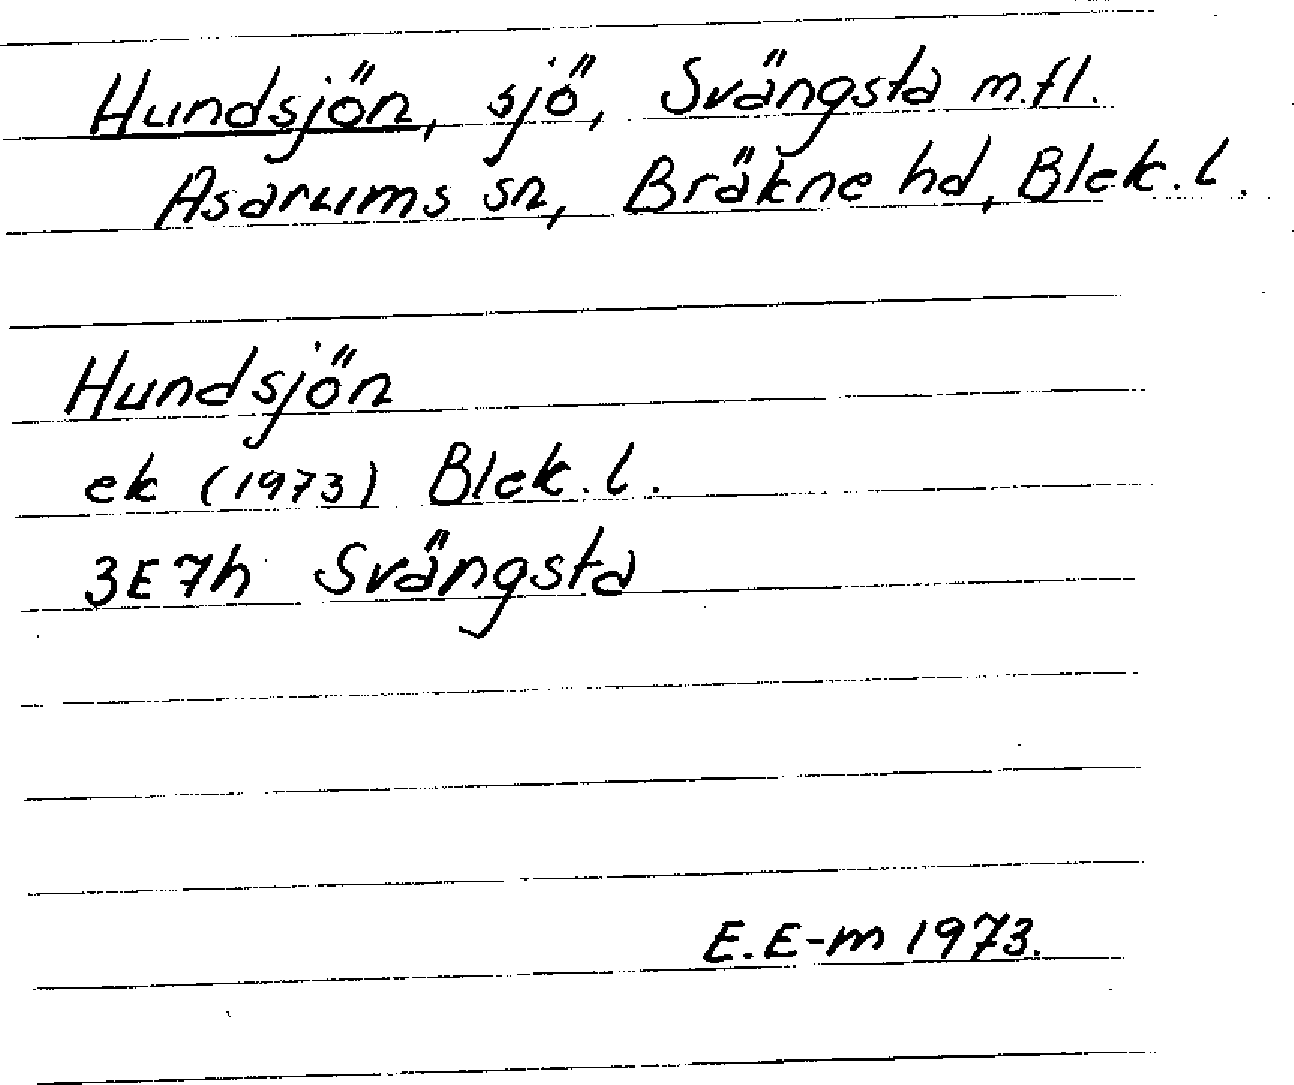 Hundsjön, sjö, Svängsta m.fl.
Asarums sn, Bräkne hd, Blek. l.
Hundsjön
ek (1973) Blek. l.
3E7h Svängsta
E. E-m 1973.